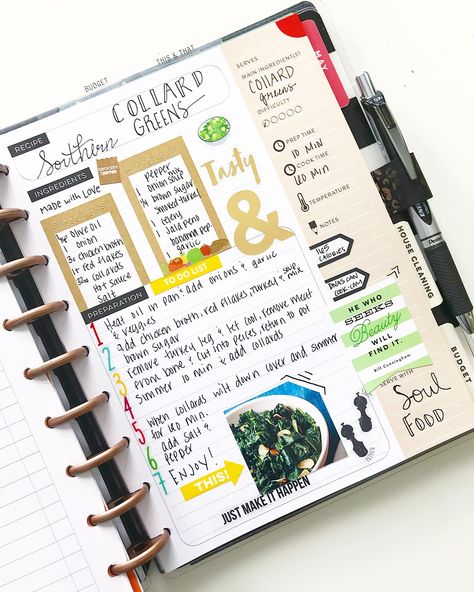 BUDGET
THIS & THAT
MAY
RECIPE
Southern
COLLARD
GREENS
INGREDIENTS
made with Love
GROCERY
olive oil
1 onion
3c chicken broth
1t red flakes
collards
hot sauce
salt
1 pepper
1 onion soup mix
brown sugar
smoked turkey
1 celery
1 jalapeno
banana pep
garlic
Tasty
&
TO DO LIST
PREPARATION
1 Heat oil in pan & add onions & garlic
& veggies
2 add chicken broth, red flakes, turkey & soup mix
brown sugar
3 remove turkey leg & let cool, remove meat
from bone & cut into pieces return to pot
4 simmer 10 min & add collards
5 When collards wilt down cover and simmer
for 40 min.
6 add salt &
pepper
7 ENJOY!
THIS!
JUST MAKE IT HAPPEN
SERVES
MAIN INGREDIENT(S)
Collard
Greens
DIFFICULTY
PREP TIME
10 MIN
COOK TIME
40 MIN
TEMPERATURE
NOTES
145
CALORIES
DIVAS CAN
COOK.COM
HE WHO
SEEKS
Beauty
WILL
FIND IT.
Bill Cunningham
SERVE WITH
Soul
FOOD
PAPER
Pentel
HOUSE CLEANING
BUDGET